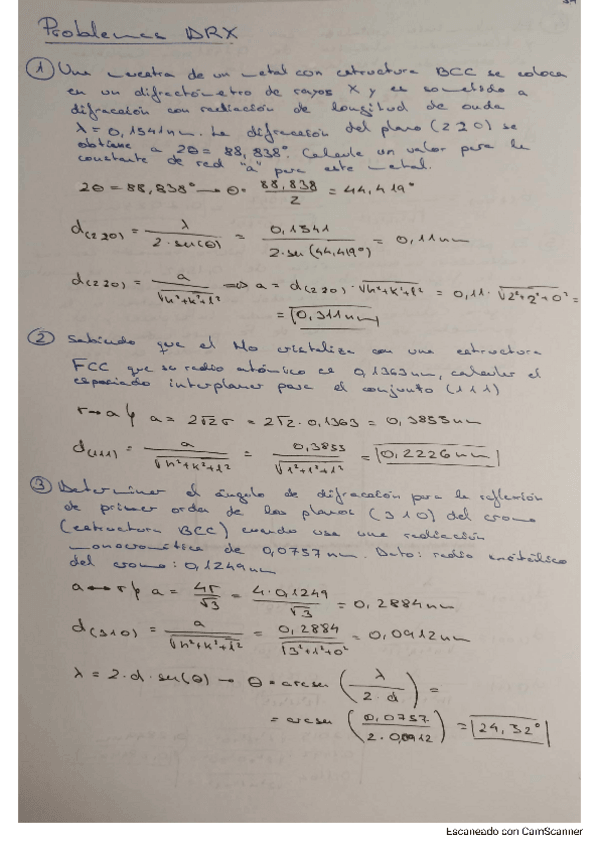 Problemas DRX
① Una muestra de un metal con estructura BCC se coloca
en un difractómetro de rayos X y es sometido a
difracción con radiación de longitud de onda
λ = 0,1541nm. La difracción del plano (220) se
obtiene a 2θ = 88,838°. Calcule un valor para la
constante de red "a" para este metal.
2θ = 88,838° → θ = 88,838/2 = 44,419°
d(220) = λ/(2·sen(θ)) = 0,1541/(2·sen(44,419°)) = 0,11nm
d(220) = a/√(h²+k²+l²) ⇒ a = d(220)·√(h²+k²+l²) = 0,11·√(2²+2²+0²) =
= 0,311nm
② Sabiendo que el Mo cristaliza con una estructura
FCC que su radio atómico es 0,1363nm, calcular el
espaciado interplanar para el conjunto (111)
r → a / a = 2√2r = 2√2·0,1363 = 0,3855nm
d(111) = a/√(h²+k²+l²) = 0,3855/√(1²+1²+1²) = 0,2226nm
③ Determinar el ángulo de difracción para la reflexión
de primer orden de los planos (310) del cromo
(estructura BCC) cuando use una radiación
monocromática de 0,0757nm. Dato: radio metálico
del cromo: 0,1249nm
a ↔ r / a = 4r/√3 = 4·0,1249/√3 = 0,2884nm
d(310) = a/√(h²+k²+l²) = 0,2884/√(3²+1²+0²) = 0,0912nm
λ = 2·d·sen(θ) → θ = arcsen(λ/(2·d)) =
= arcsen(0,0757/(2·0,0912)) = 24,32°
Escaneado con CamScanner